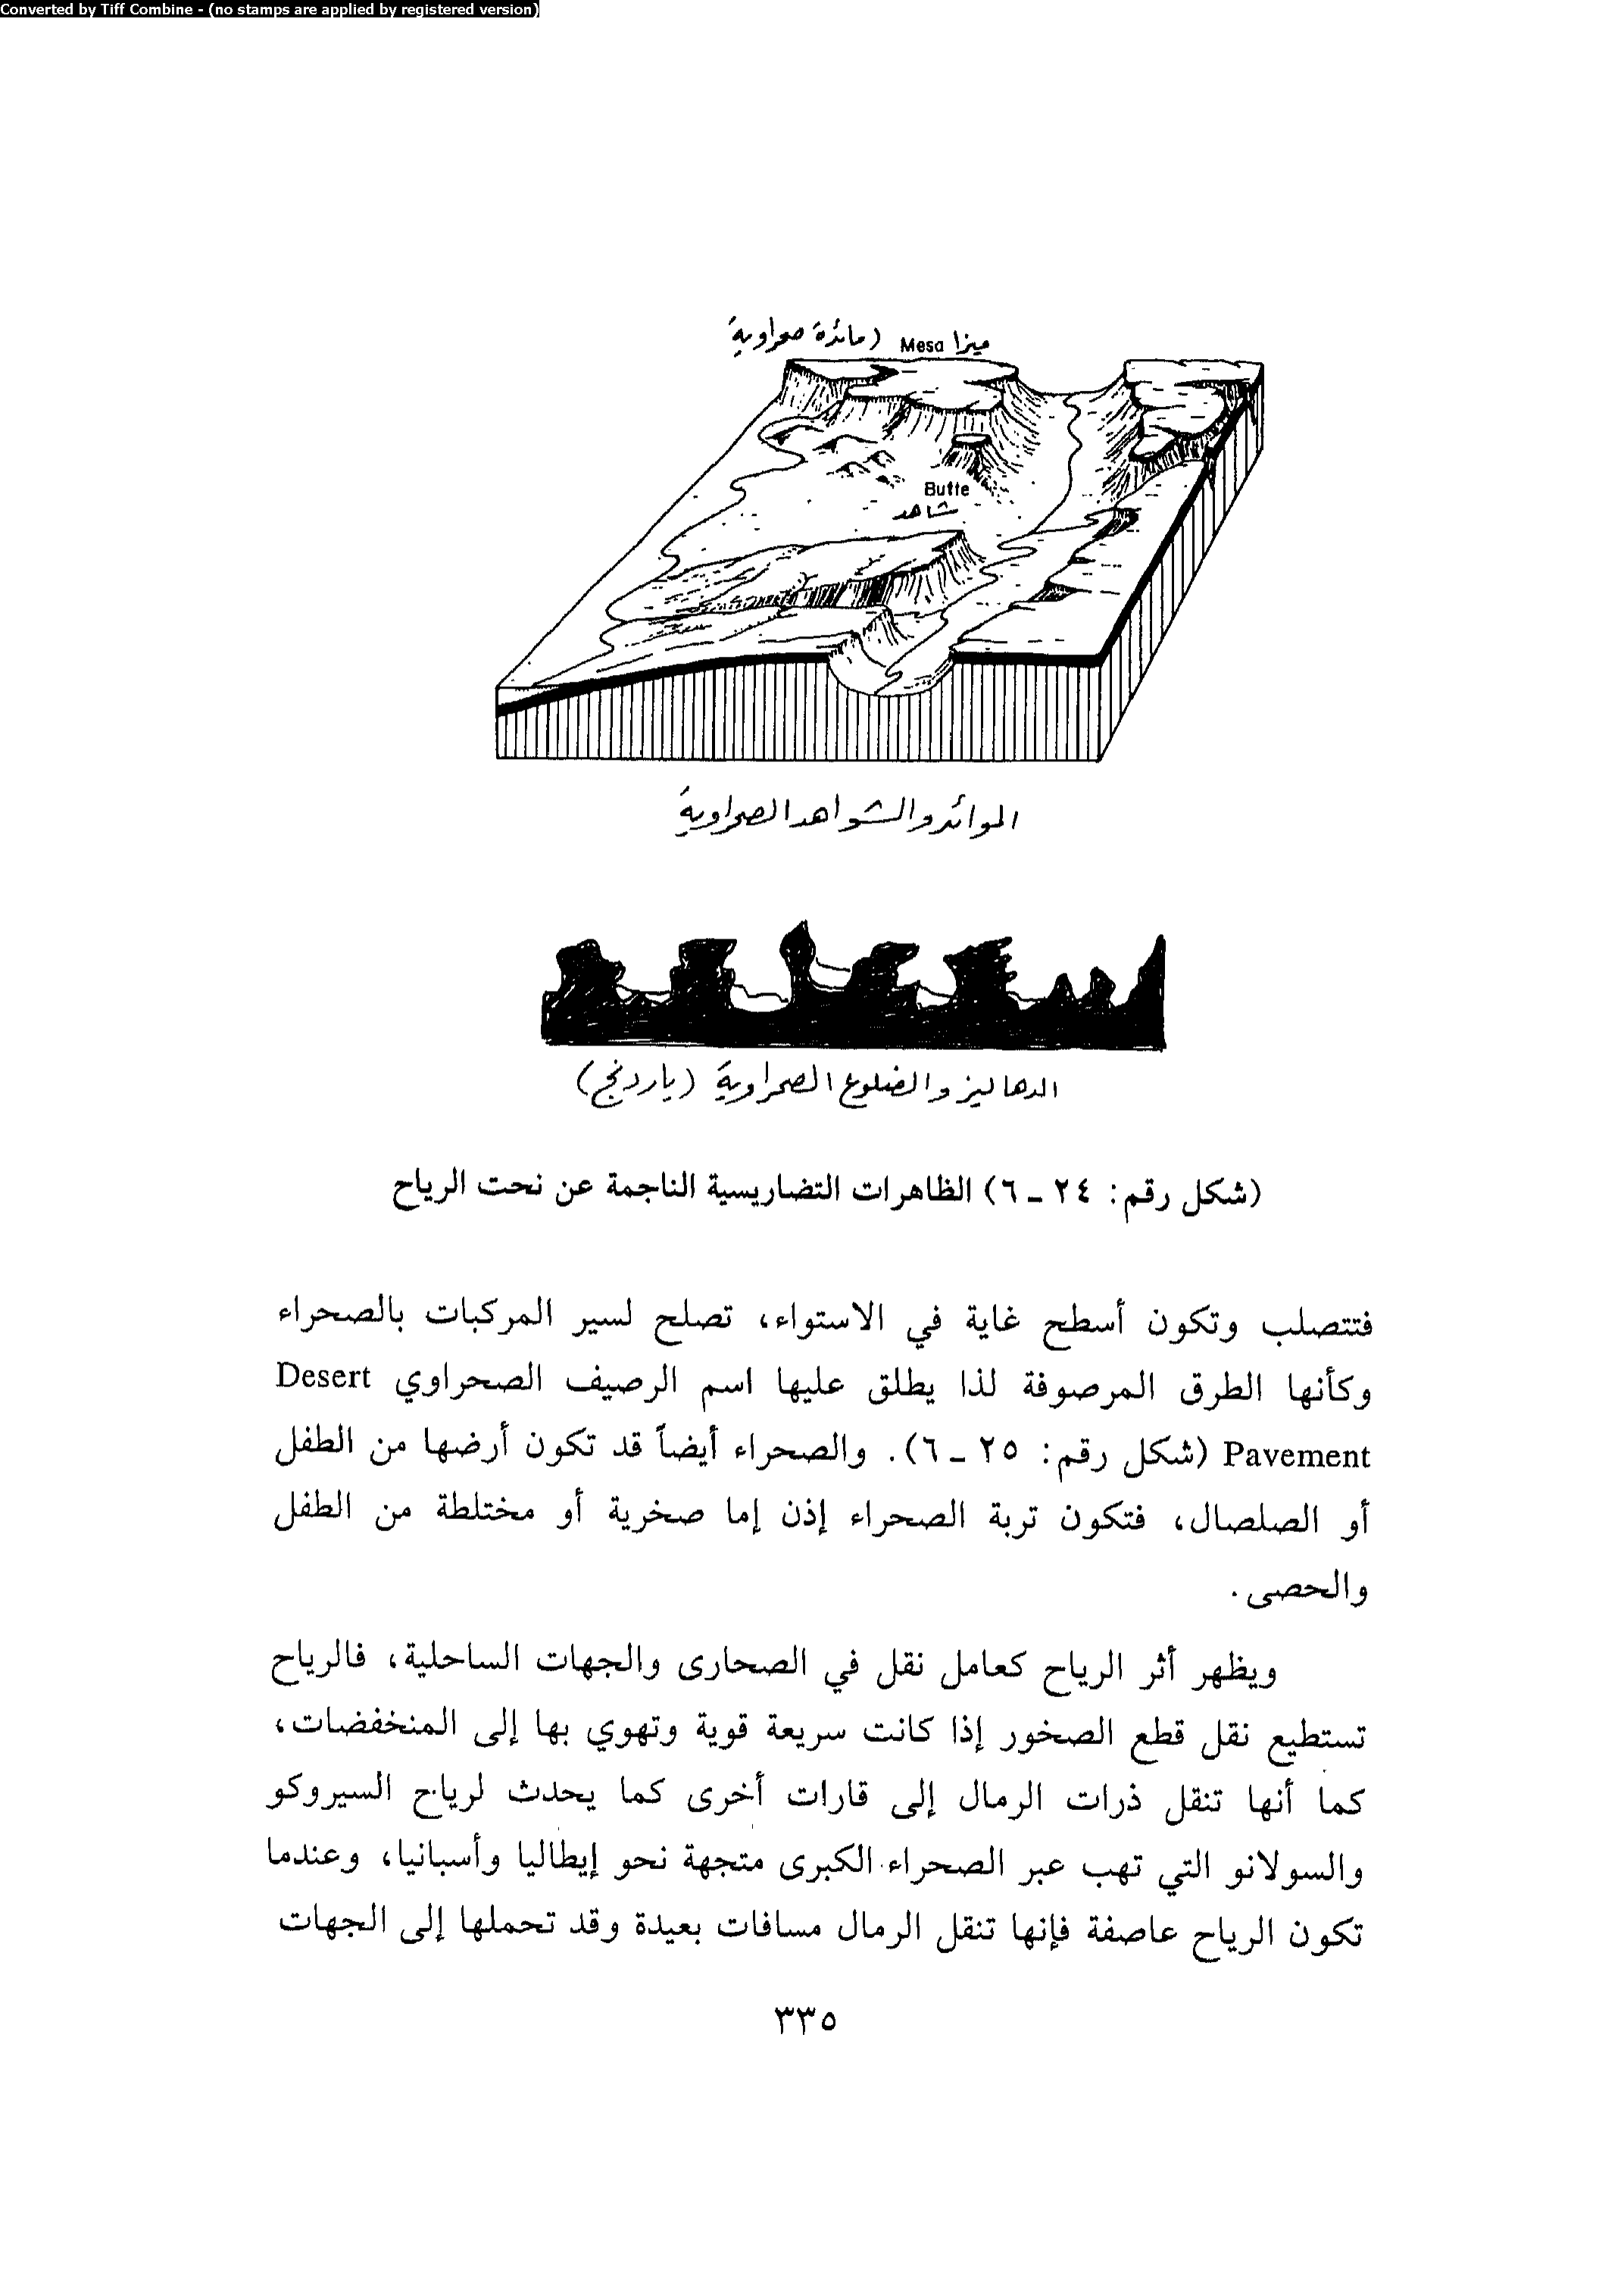 Converted by Tiff Combine - (no stamps are applied by registered version)
ميزا Mesa (مائدة صحراوية
Butte
شاهد
الموائد والشواهد الصحراوية
الدهاليز والضلوع الصحراوية (ياردنج)
(شكل رقم: ٢٤ ـ ٦) الظاهرات التضاريسية الناجمة عن نحت الرياح
فتتصلب وتكون أسطح غاية في الاستواء، تصلح لسير المركبات بالصحراء
وكأنها الطرق المرصوفة لذا يطلق عليها اسم الرصيف الصحراوي Desert
Pavement (شكل رقم: ٢٥ ـ ٦). والصحراء أيضاً قد تكون أرضها من الطفل
أو الصلصال، فتكون تربة الصحراء إذن إما صخرية أو مختلطة من الطفل
والحصى.
ويظهر أثر الرياح كعامل نقل في الصحارى والجهات الساحلية، فالرياح
تستطيع نقل قطع الصخور إذا كانت سريعة قوية وتهوي بها إلى المنخفضات،
كما أنها تنقل ذرات الرمال إلى قارات أخرى كما يحدث لرياح السيروكو
والسولانو التي تهب عبر الصحراء الكبرى متجهة نحو إيطاليا وأسبانيا، وعندما
تكون الرياح عاصفة فإنها تنقل الرمال مسافات بعيدة وقد تحملها إلى الجهات
٣٣٥